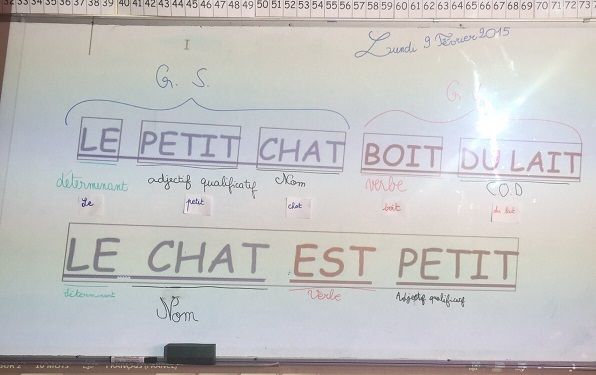 32 33 34 35 36 37 38 39 40 41 42 43 44 45 46 47 48 49 50 51 52 53 54 55 56 57 58 59 60 61 62 63 64 65 66 67 68 69 70 71 72 73
Lundi 9 Février 2015
G. S. G.
LE PETIT CHAT BOIT DU LAIT
déterminant adjectif qualificatif Nom verbe C.O.D
Le petit chat boit du lait
LE CHAT EST PETIT
déterminant Nom Verbe Adjectif qualificatif
10 MOTS FRANÇAIS (FRANCE)